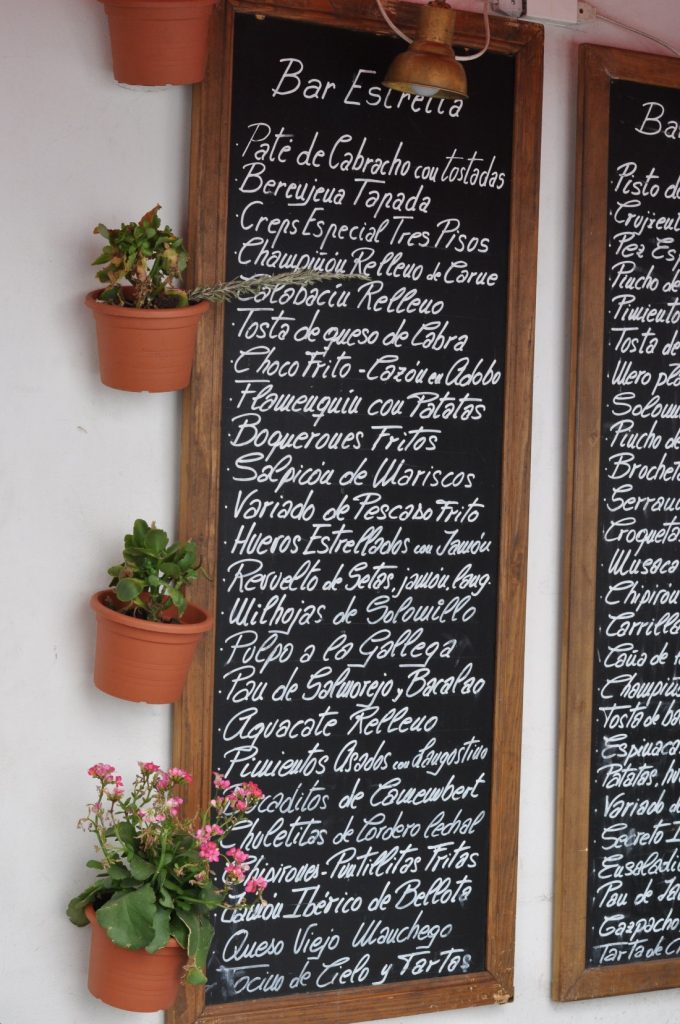 Bar Estrella
Paté de Cabracho con tostadas
Berenjena Tapada
Creps Especial Tres Pisos
Champiñón Relleno de Carne
Calabacín Relleno
Tosta de queso de Cabra
Choco Frito - Cazón en Adobo
Flamenquin con Patatas
Boquerones Fritos
Salpicón de Mariscos
Variado de Pescado Frito
Huevos Estrellados con Jamón
Revuelto de Setas, jamón, lang.
Milhojas de Solomillo
Pulpo a la Gallega
Pan de Salmorejo y Bacalao
Aguacate Relleno
Pimientos Asados con Langostino
Bocaditos de Camembert
Chuletitas de Cordero lechal
Chipirones - Puntillitas Fritas
Jamón Ibérico de Bellota
Queso Viejo Manchego
Tocino de Cielo y Tartas
Ba
Pisto d
Crujient
Pez Esp
Pincho de
Pimiento
Tosta de
Mero pla
Solom
Pincho de
Brochet
Serran
Croquetas
Musaca
Chipirón
Carrilla
Caña de
Champiñ
Tosta de ba
Espinaca
Patatas, hu
Variado de
Secreto I
Ensalad
Pan de Ja
Gazpacho
Tarta de C